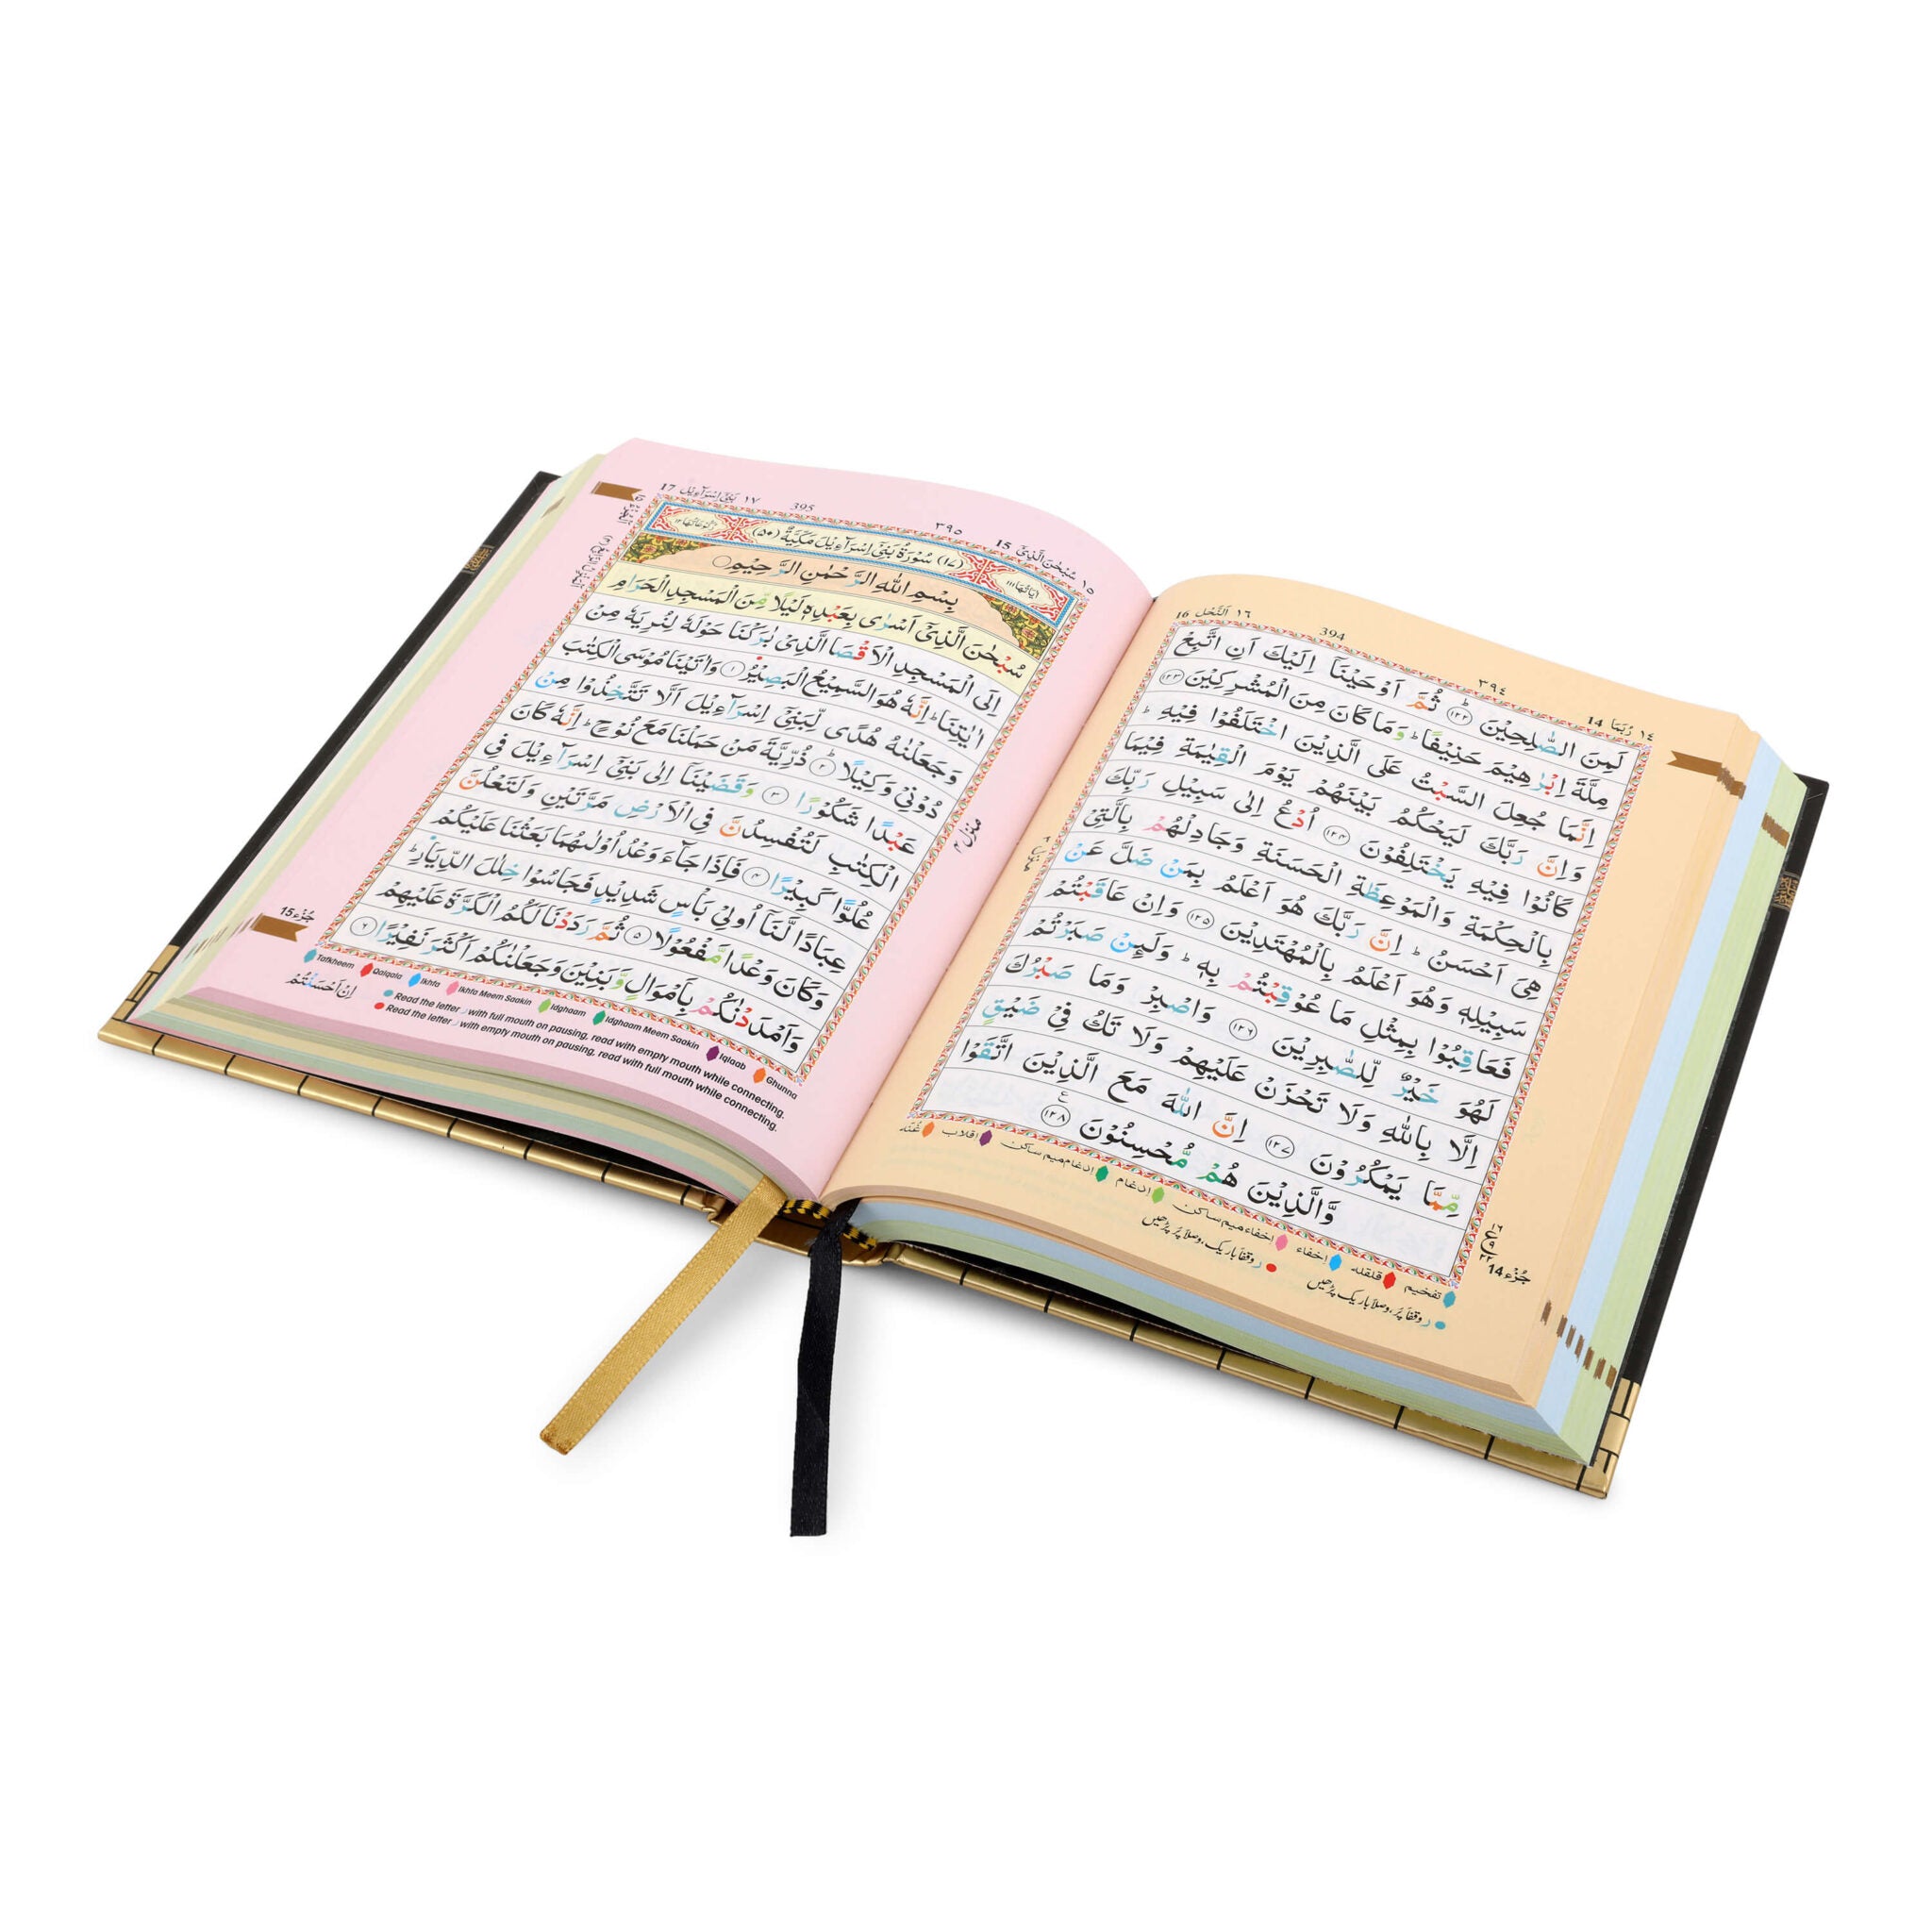 16 اَلنَّحْل ١٦
394
٣٩٤
14 رُبَمَا ١٤
لَمِنَ الصّٰلِحِيْنَ ؕ ﴿١٢٢﴾ ثُمَّ اَوْحَيْنَاۤ اِلَيْكَ اَنِ اتَّبِعْ
مِلَّةَ اِبْرٰهِيْمَ حَنِيْفًا ؕ وَمَا كَانَ مِنَ الْمُشْرِكِيْنَ ﴿١٢٣﴾
اِنَّمَا جُعِلَ السَّبْتُ عَلَى الَّذِيْنَ اخْتَلَفُوْا فِيْهِ ؕ
وَاِنَّ رَبَّكَ لَيَحْكُمُ بَيْنَهُمْ يَوْمَ الْقِيٰمَةِ فِيْمَا
كَانُوْا فِيْهِ يَخْتَلِفُوْنَ ﴿١٢٤﴾ اُدْعُ اِلٰى سَبِيْلِ رَبِّكَ
بِالْحِكْمَةِ وَالْمَوْعِظَةِ الْحَسَنَةِ وَجَادِلْهُمْ بِالَّتِيْ
هِيَ اَحْسَنُ ؕ اِنَّ رَبَّكَ هُوَ اَعْلَمُ بِمَنْ ضَلَّ عَنْ
سَبِيْلِهٖ وَهُوَ اَعْلَمُ بِالْمُهْتَدِيْنَ ﴿١٢٥﴾ وَاِنْ عَاقَبْتُمْ
فَعَاقِبُوْا بِمِثْلِ مَا عُوْقِبْتُمْ بِهٖ ؕ وَلَىِٕنْ صَبَرْتُمْ
لَهُوَ خَيْرٌ لِّلصّٰبِرِيْنَ ﴿١٢٦﴾ وَاصْبِرْ وَمَا صَبْرُكَ
اِلَّا بِاللّٰهِ وَلَا تَحْزَنْ عَلَيْهِمْ وَلَا تَكُ فِيْ ضَيْقٍ
مِّمَّا يَمْكُرُوْنَ ﴿١٢٧﴾ اِنَّ اللّٰهَ مَعَ الَّذِيْنَ اتَّقَوْا
وَّالَّذِيْنَ هُمْ مُّحْسِنُوْنَ ﴿١٢٨﴾
جُزْء 14
تفخيم قلقله إخفاء إخفاء ميم ساكن إدغام إدغام ميم ساكن إقلاب غُنّه
ر وقفاً پُر، وصلاً باریک پڑھیں
ر وقفاً باریک، وصلاً پُر پڑھیں
17 بَنِيْٓ اِسْرَآءِيْل ١٧
395
٣٩٥
15 سُبْحٰنَ الَّذِيْٓ ١٥
(١٧) سُوْرَةُ بَنِيْٓ اِسْرَآءِيْلَ مَكِّيَّةٌ (٥٠)
بِسْمِ اللّٰهِ الرَّحْمٰنِ الرَّحِيْمِ
سُبْحٰنَ الَّذِيْٓ اَسْرٰى بِعَبْدِهٖ لَيْلًا مِّنَ الْمَسْجِدِ الْحَرَامِ
اِلَى الْمَسْجِدِ الْاَقْصَا الَّذِيْ بٰرَكْنَا حَوْلَهٗ لِنُرِيَهٗ مِنْ
اٰيٰتِنَا ؕ اِنَّهٗ هُوَ السَّمِيْعُ الْبَصِيْرُ ﴿١﴾ وَاٰتَيْنَا مُوْسَى الْكِتٰبَ
وَجَعَلْنٰهُ هُدًى لِّبَنِيْٓ اِسْرَآءِيْلَ اَلَّا تَتَّخِذُوْا مِنْ
دُوْنِيْ وَكِيْلًا ؕ ﴿٢﴾ ذُرِّيَّةَ مَنْ حَمَلْنَا مَعَ نُوْحٍ ؕ اِنَّهٗ كَانَ
عَبْدًا شَكُوْرًا ﴿٣﴾ وَقَضَيْنَاۤ اِلٰى بَنِيْٓ اِسْرَآءِيْلَ فِي
الْكِتٰبِ لَتُفْسِدُنَّ فِي الْاَرْضِ مَرَّتَيْنِ وَلَتَعْلُنَّ
عُلُوًّا كَبِيْرًا ﴿٤﴾ فَاِذَا جَآءَ وَعْدُ اُوْلٰىهُمَا بَعَثْنَا عَلَيْكُمْ
عِبَادًا لَّنَاۤ اُولِيْ بَاْسٍ شَدِيْدٍ فَجَاسُوْا خِلٰلَ الدِّيَارِ ؕ
وَكَانَ وَعْدًا مَّفْعُوْلًا ﴿٥﴾ ثُمَّ رَدَدْنَا لَكُمُ الْكَرَّةَ عَلَيْهِمْ
وَاَمْدَدْنٰكُمْ بِاَمْوَالٍ وَّبَنِيْنَ وَجَعَلْنٰكُمْ اَكْثَرَ نَفِيْرًا ﴿٦﴾
جُزْء 15
Tafkheem Qalqala Ikhfa Ikhfa Meem Saakin Idghaam Idghaam Meem Saakin Iqlaab Ghunna
Read the letter ر with full mouth on pausing, read with empty mouth while connecting.
Read the letter ر with empty mouth on pausing, read with full mouth while connecting.
اِنْ اَحْسَنْتُمْ